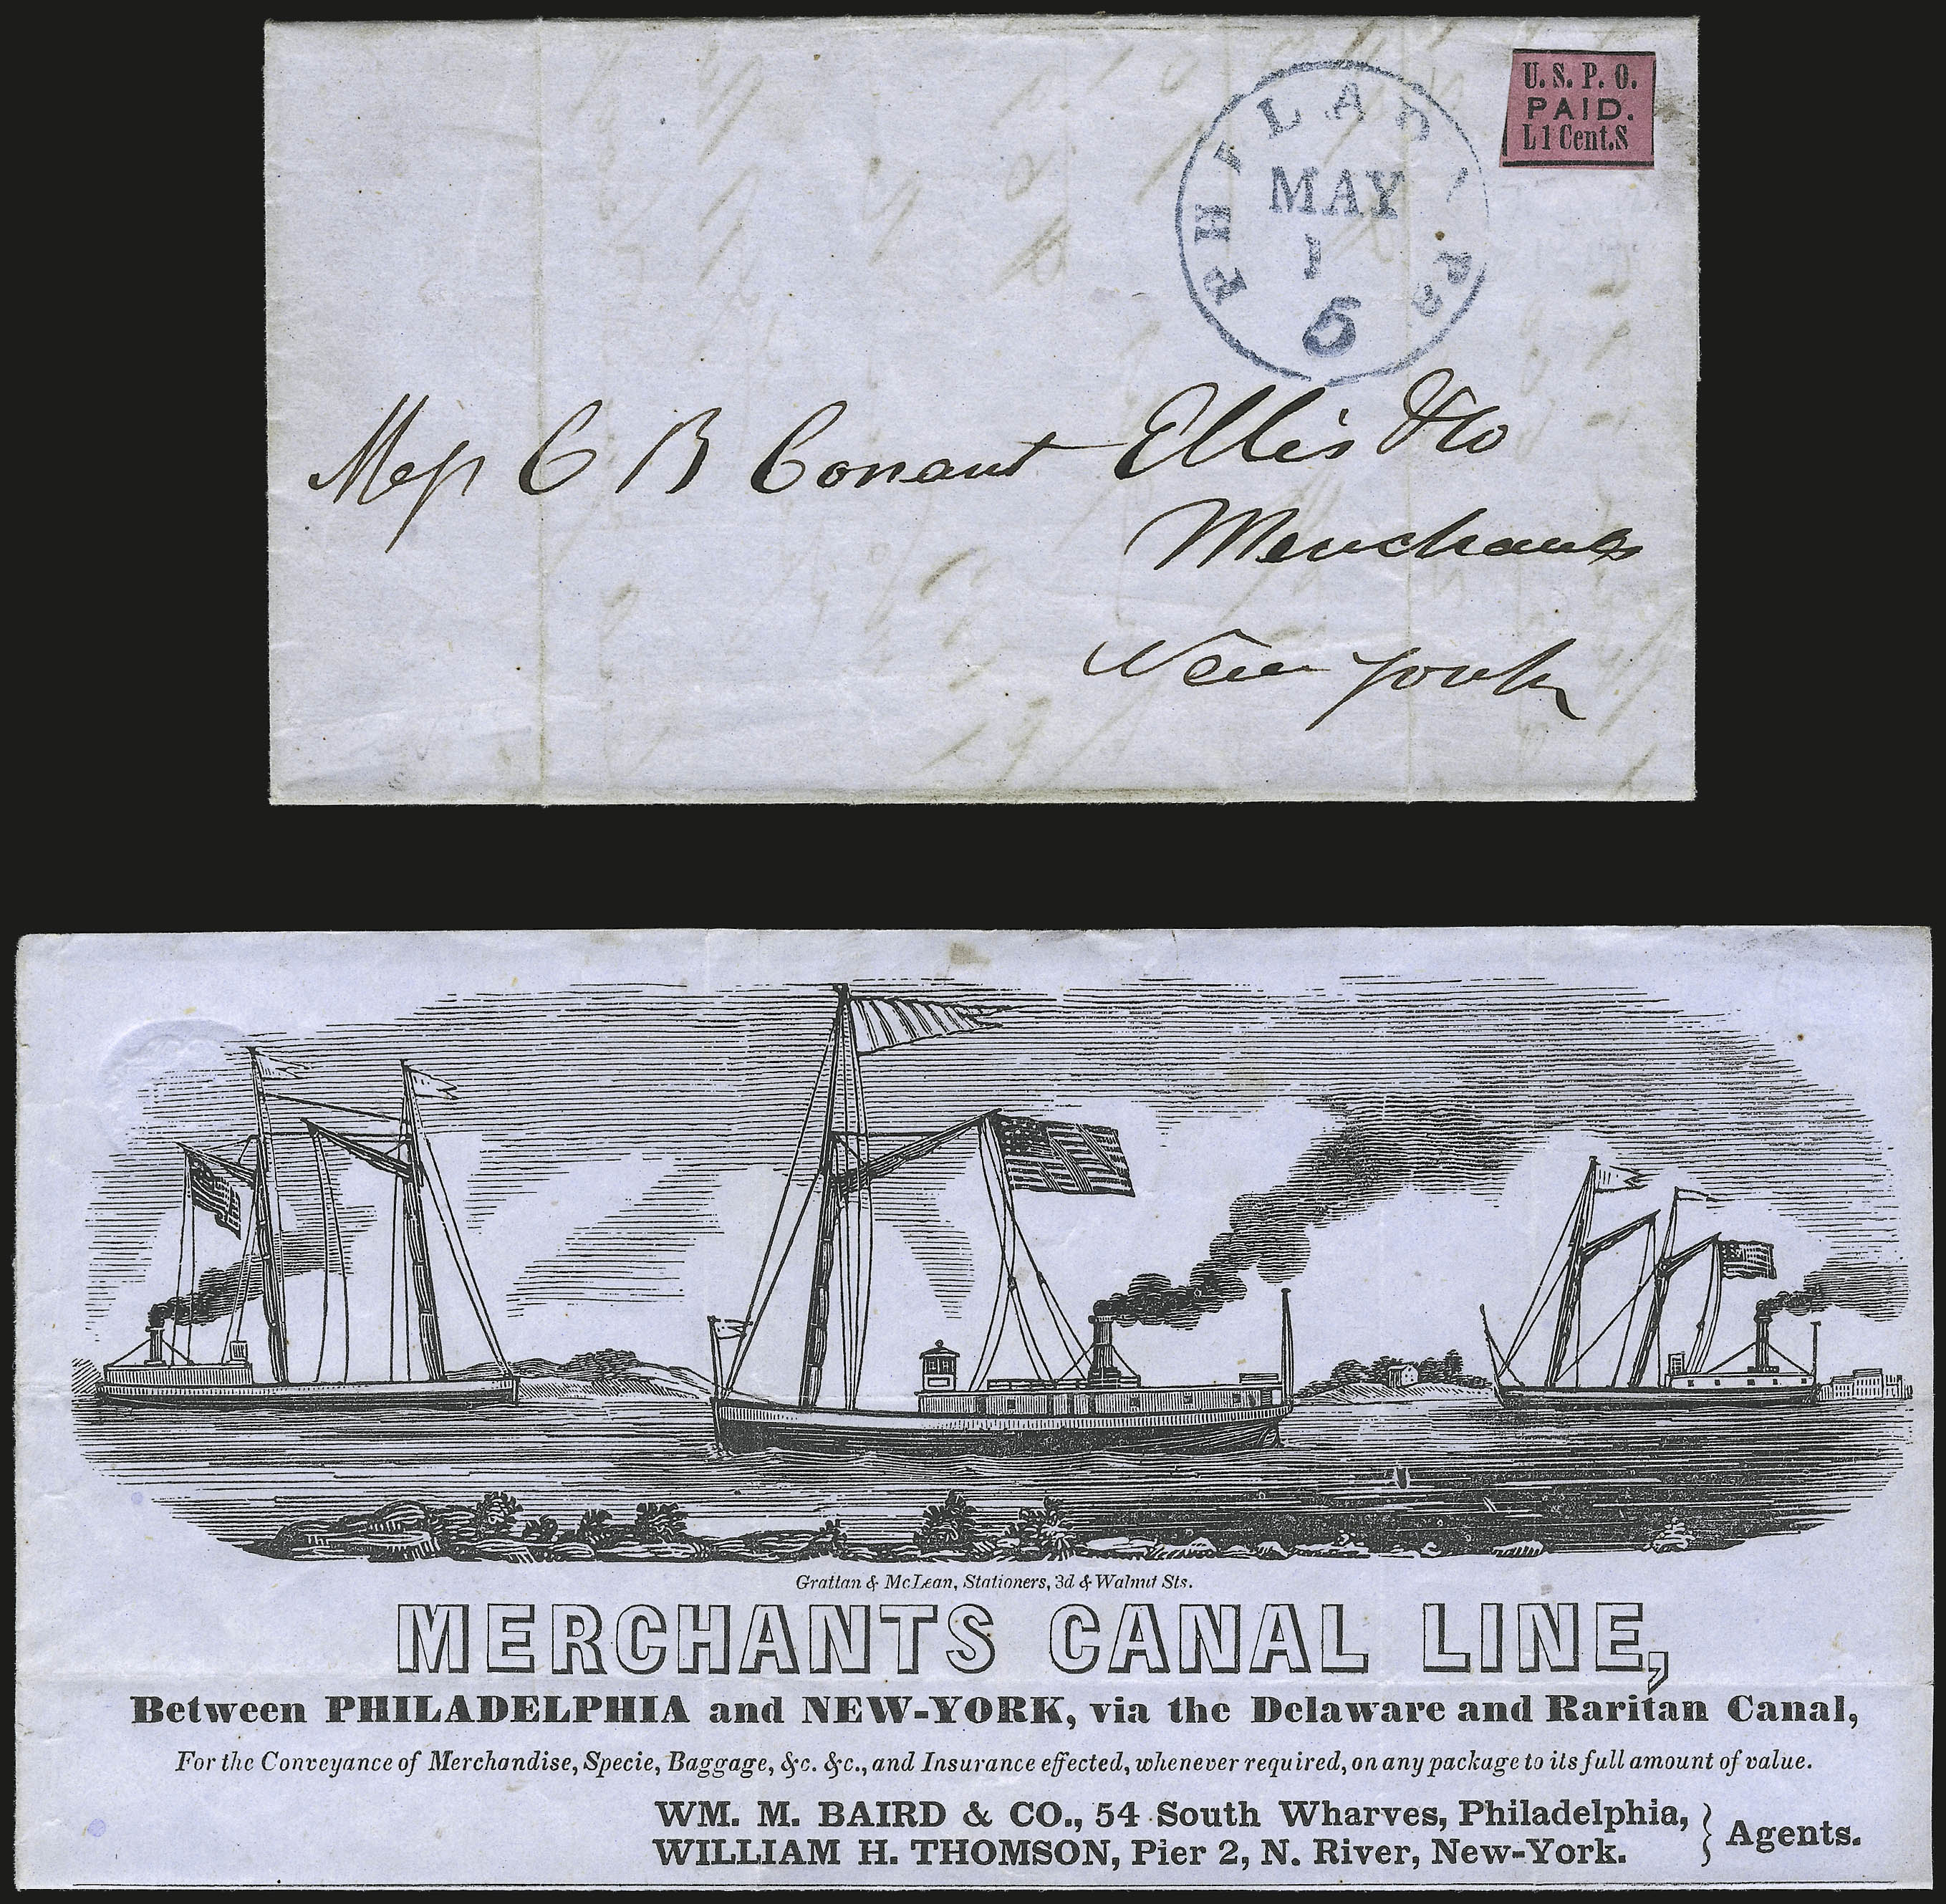 U. S. P. O.
PAID.
L 1 Cent.S
PHILADA Pa
MAY
1
5
Mess C B Conant Ellis & Co
Merchants
New York
Grattan & McLean, Stationers, 3d & Walnut Sts.
MERCHANTS CANAL LINE,
Between PHILADELPHIA and NEW-YORK, via the Delaware and Raritan Canal,
For the Conveyance of Merchandise, Specie, Baggage, &c. &c., and Insurance effected, whenever required, on any package to its full amount of value.
WM. M. BAIRD & CO., 54 South Wharves, Philadelphia,
WILLIAM H. THOMSON, Pier 2, N. River, New-York. } Agents.